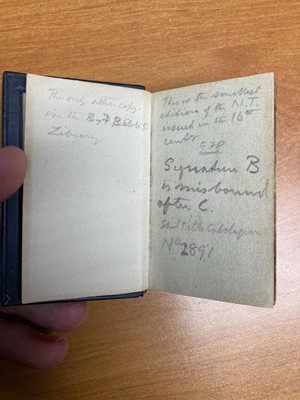 The only other copy
in the B. & F. Bible S
Library
This is the smallest
edition of the N.T.
issued in the 16th
century
Signature B
is misbound
after C.
No 2891